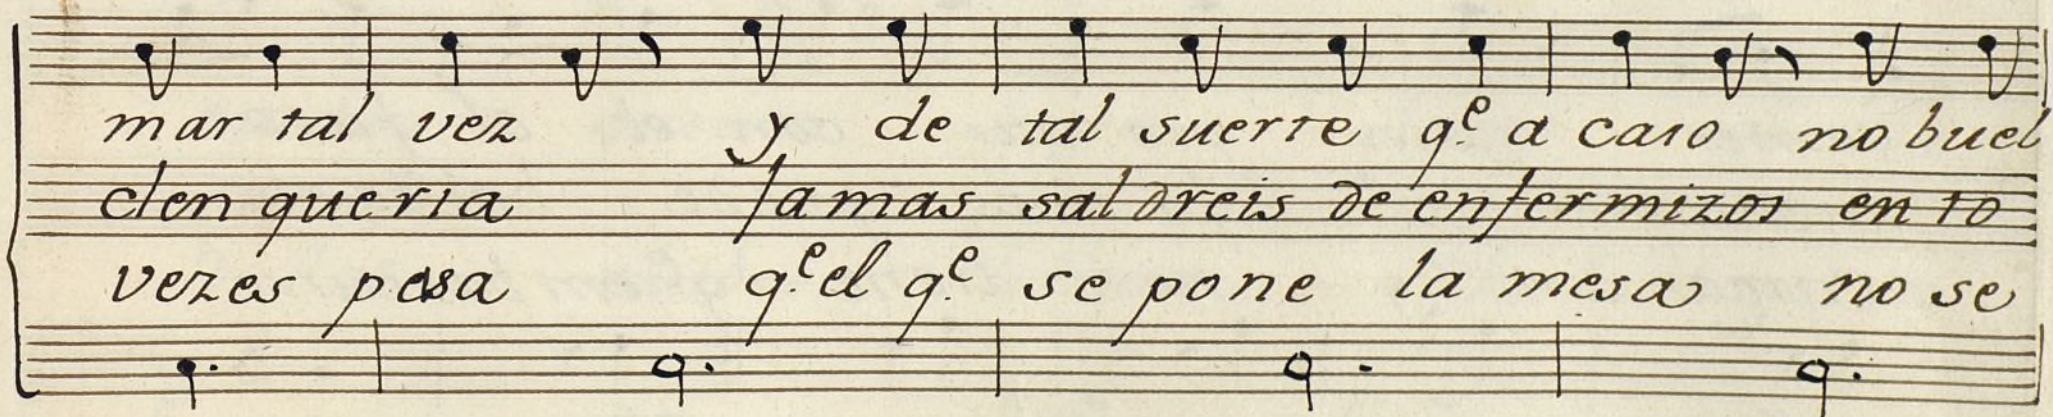 mar tal vez y de tal suerte q.e a caso no buel
clen queria Jamas saldreis de enfermizos en to
vezes pesa q.e el q.e se pone la mesa no se